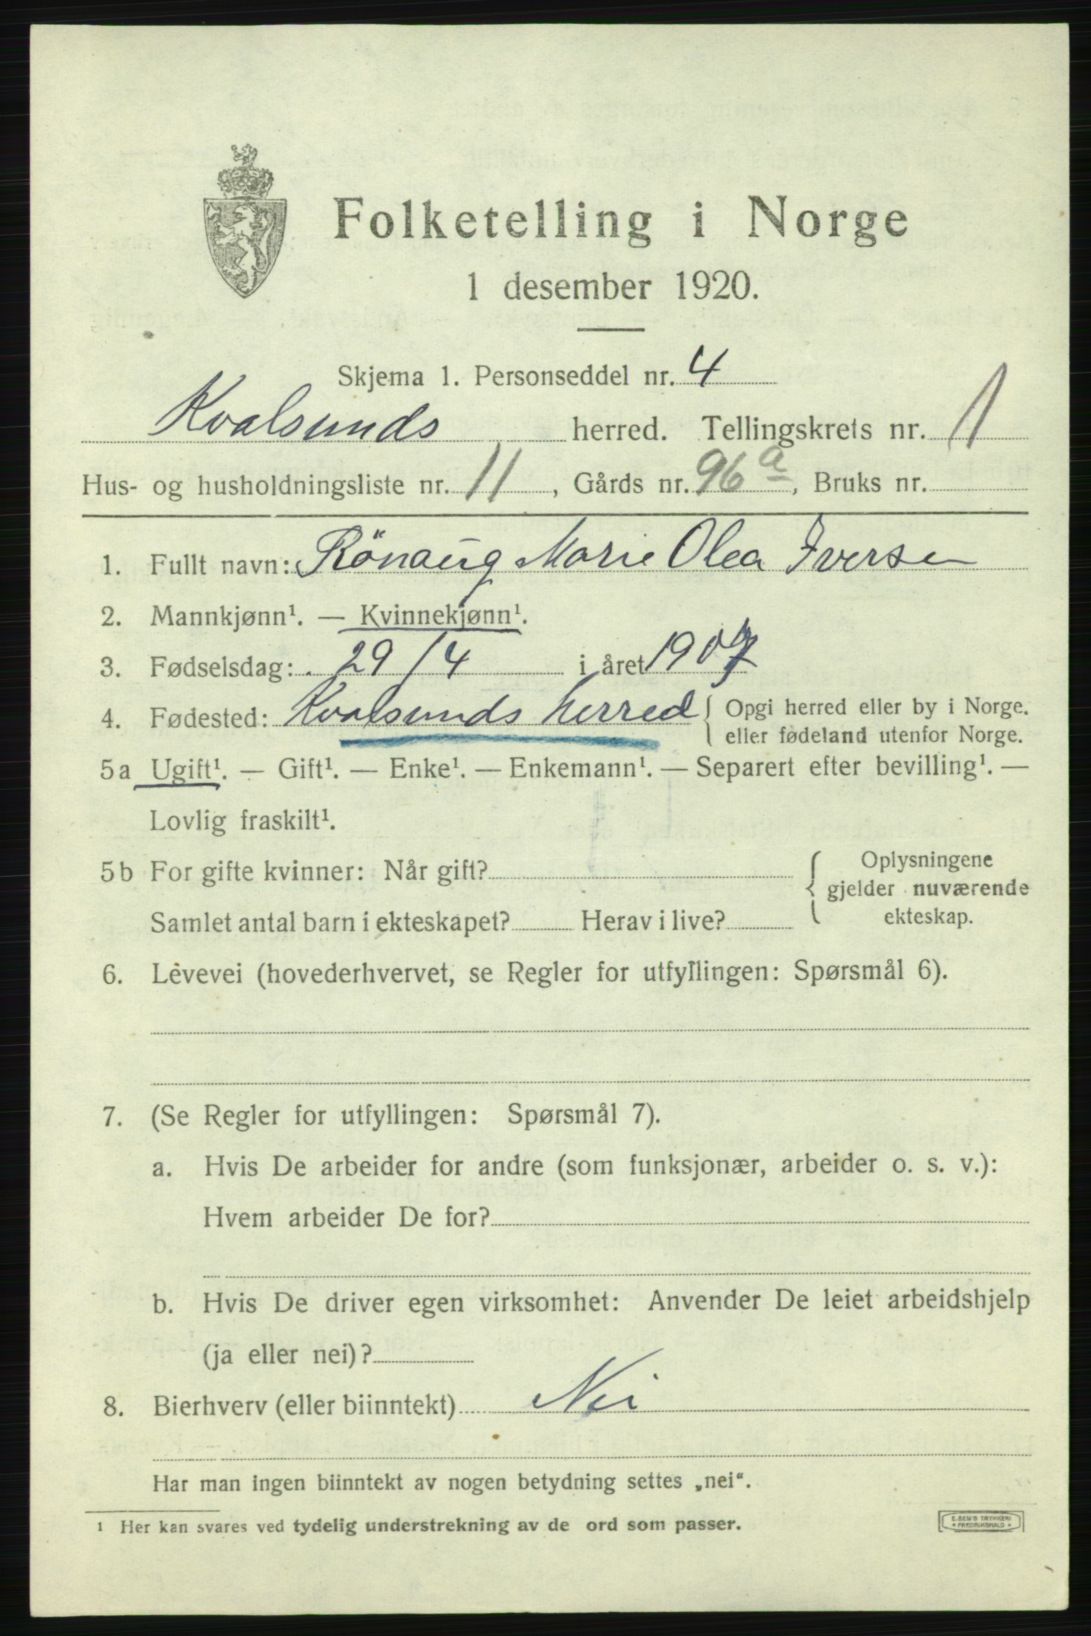 Folketelling i Norge
1 desember 1920.
Skjema 1. Personseddel nr. 4
Kvalsunds herred. Tellingskrets nr. 1
Hus- og husholdningsliste nr. 11, Gårds nr. 96 a, Bruks nr.
1. Fullt navn: Rönaug Marie Olea Iversen
2. Mannkjønn¹. — Kvinnekjønn¹.
3. Fødselsdag: 29/4 i året 1907
4. Fødested: Kvalsunds herred { Opgi herred eller by i Norge.
eller fødeland utenfor Norge.
5a Ugift¹. — Gift¹. — Enke¹. — Enkemann¹. — Separert efter bevilling¹. —
Lovlig fraskilt¹.
5b For gifte kvinner: Når gift? { Oplysningene
gjelder nuværende
Samlet antal barn i ekteskapet? Herav i live? ekteskap.
6. Levevei (hovederhvervet, se Regler for utfyllingen: Spørsmål 6).
7. (Se Regler for utfyllingen: Spørsmål 7).
a. Hvis De arbeider for andre (som funksjonær, arbeider o. s. v.):
Hvem arbeider De for?
b. Hvis De driver egen virksomhet: Anvender De leiet arbeidshjelp
(ja eller nei)?
8. Bierhverv (eller biinntekt) Nei
Har man ingen biinntekt av nogen betydning settes „nei“.
¹ Her kan svares ved tydelig understrekning av de ord som passer.